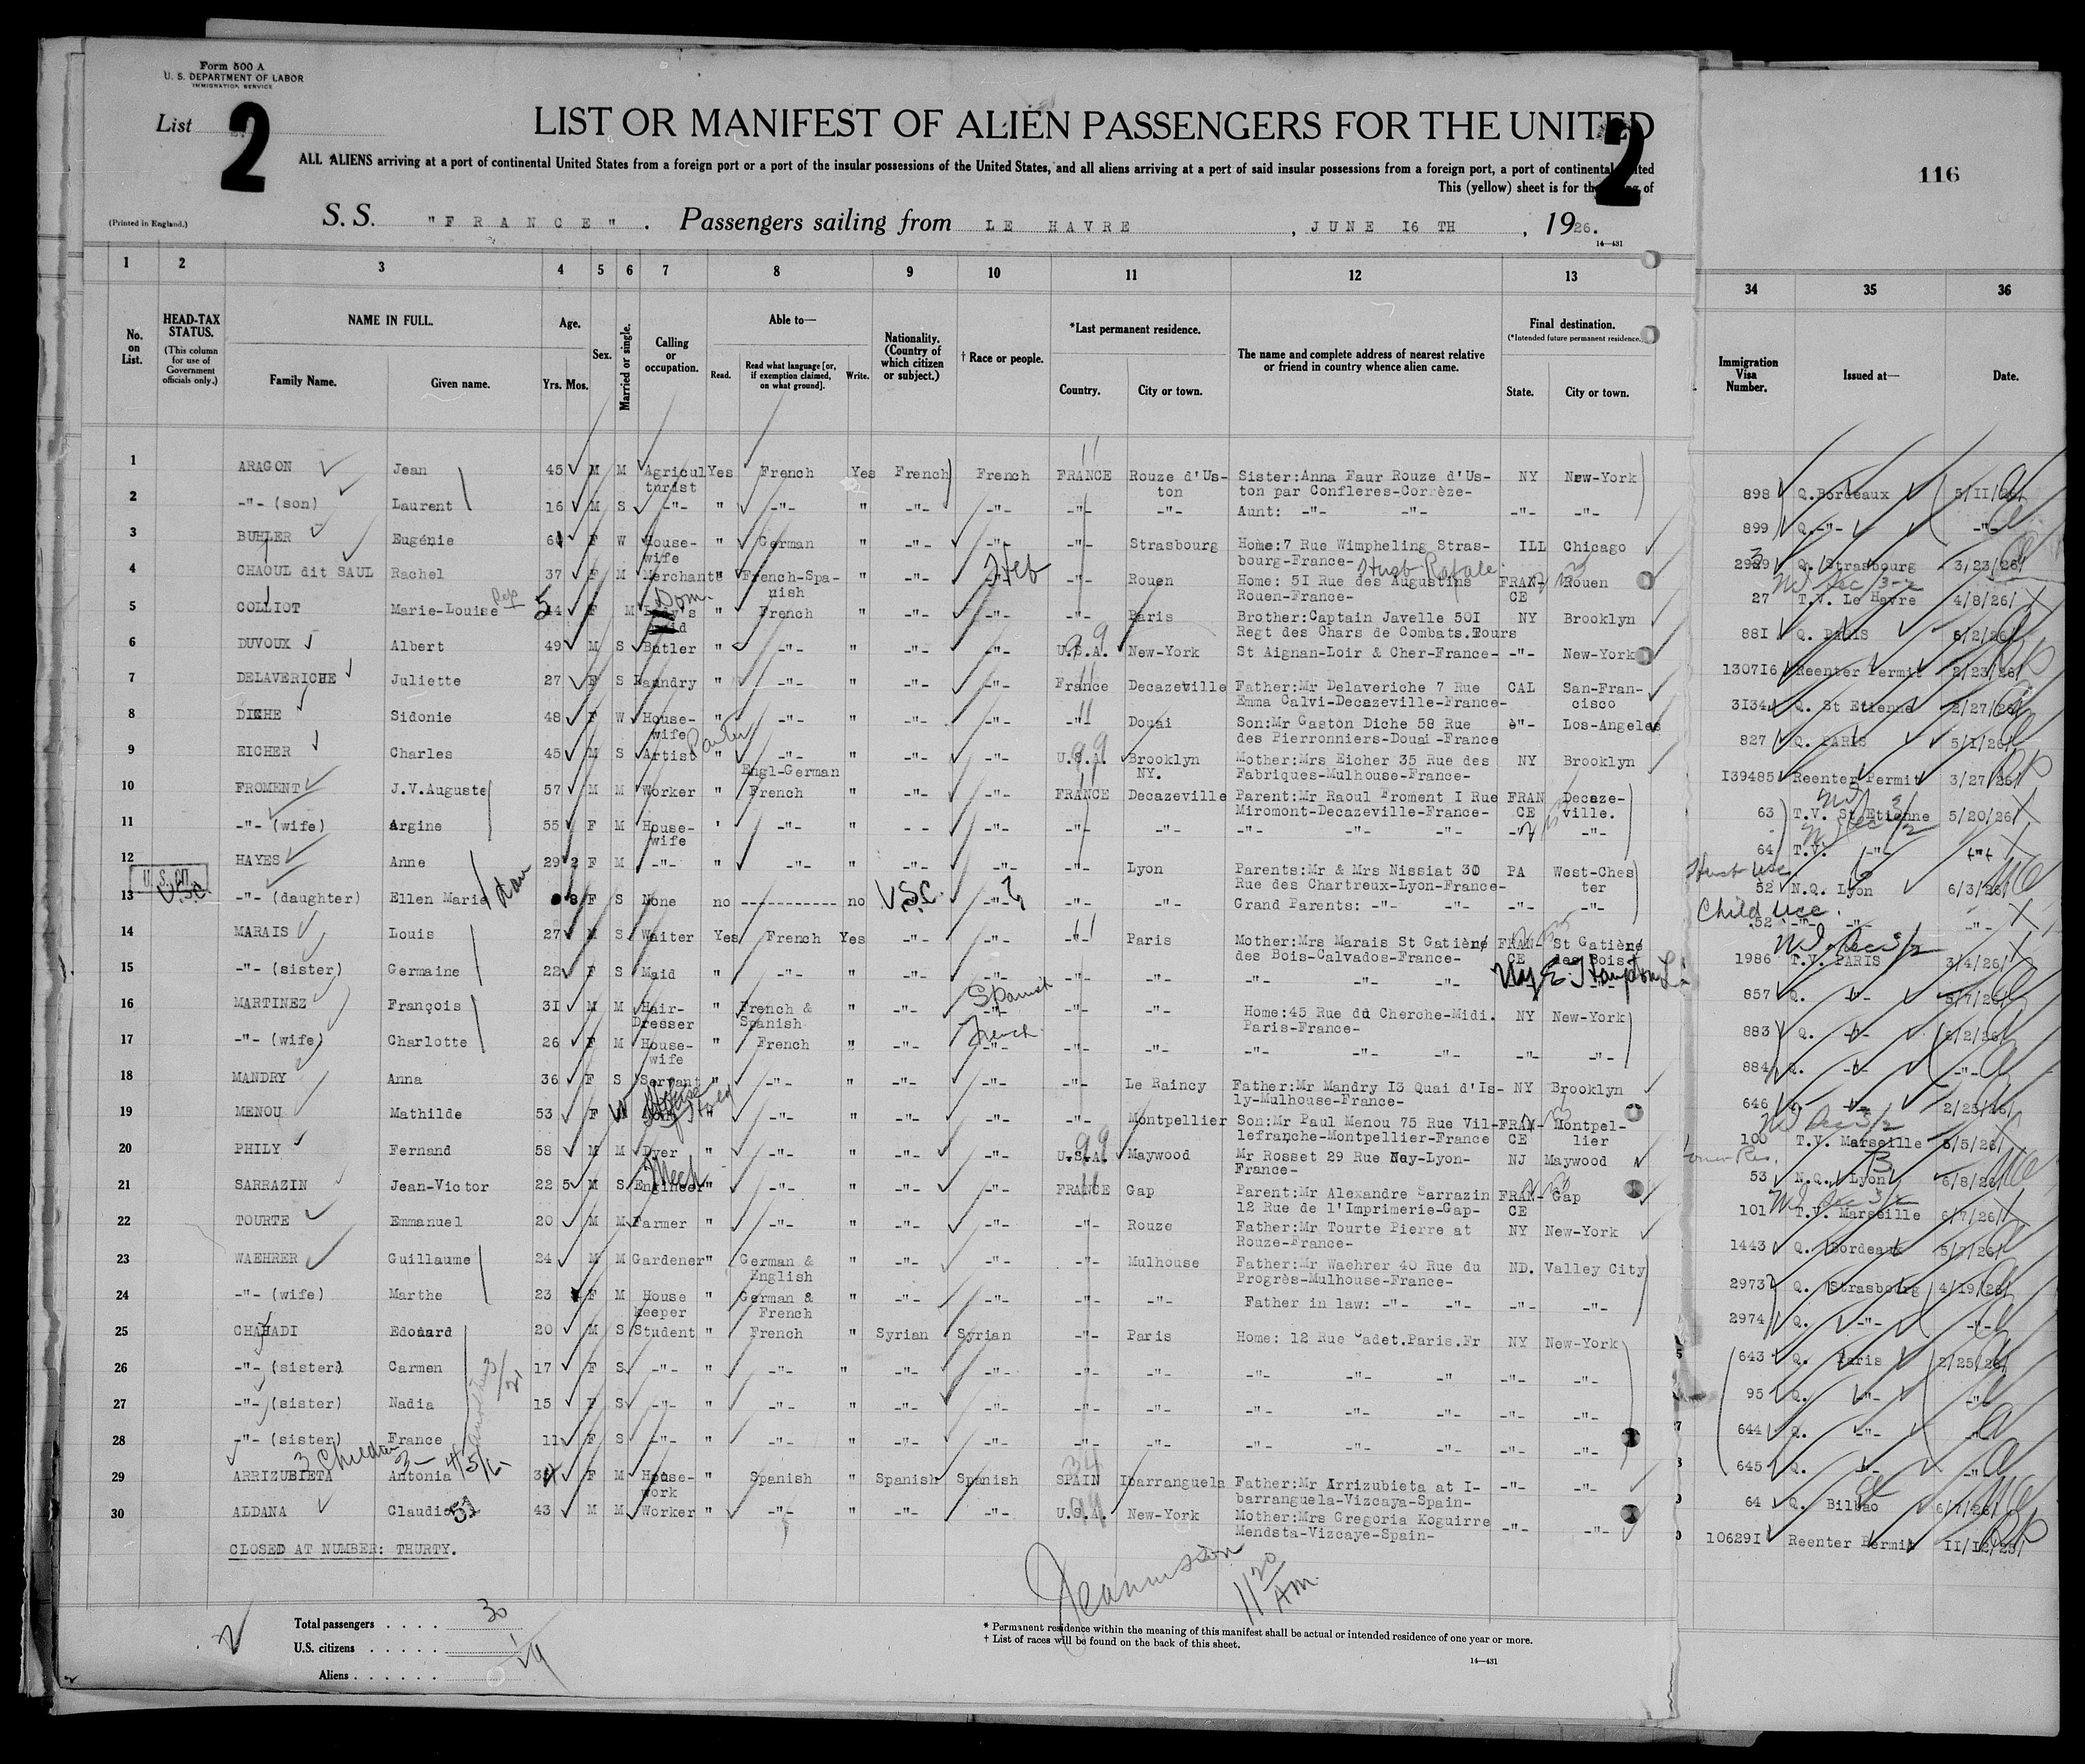 Form 500 A
U. S. DEPARTMENT OF LABOR
IMMIGRATION SERVICE
List 2
LIST OR MANIFEST OF ALIEN PASSENGERS FOR THE UNITED
2
ALL ALIENS arriving at a port of continental United States from a foreign port or a port of the insular possessions of the United States, and all aliens arriving at a port of said insular possessions from a foreign port, a port of continental
This (yellow) sheet is for the of
116
(Printed in England.)
S. S. "FRANCE". Passengers sailing from LE HAVRE, JUNE I6 TH, 1926.
14—431
1 2 3 4 5 6 7 8 9 10 11 12 13 34 35 36
No. on List.
HEAD-TAX STATUS.
(This column for use of Government officials only.)
NAME IN FULL.
Family Name. Given name.
Age.
Yrs. Mos.
Sex.
Married or single.
Calling or occupation.
Able to—
Read. Read what language [or, if exemption claimed, on what ground]. Write.
Nationality. (Country of which citizen or subject.)
† Race or people.
*Last permanent residence.
Country. City or town.
The name and complete address of nearest relative or friend in country whence alien came.
Final destination.
(*Intended future permanent residence.)
State. City or town.
Immigration Visa Number.
Issued at—
Date.
1 ARAGON Jean 45 M M Agricul Yes French Yes French French FRANCE Rouze d'Us- Sister:Anna Faur Rouze d'Us- NY New-York 898 Q.Bordeaux 5/II/26
turist ton ton par Confleres-Corrèze-
2 -"- (son) Laurent 16 M S -"- " -"- " -"- -"- -"- -"- Aunt: -"- -"- -"- -"- 899 Q.-"- -"-
3 BUHLER Eugénie F W House- " German " -"- -"- -"- Strasbourg Home:7 Rue Wimpheling Stras- ILL Chicago Q. Strasbourg 3/23/26
wife bourg-France-
4 CHAOUL dit SAUL Rachel 37 F M Merchant " French-Spa- " -"- Heb -"- Rouen Home: 5I Rue des Augustins FRAN- Rouen 27 T.V. Le Havre 4/8/26
nish Rouen-France- CE
Husb Rafale
5 COLLIOT Marie-Louise F M Dom. " French " -"- -"- -"- Paris Brother:Captain Javelle 50I NY Brooklyn 88I Q. PARIS 6/2/26
Regt des Chars de Combats.Tours
6 DUVOUX Albert 49 M S Butler " -"- " -"- -"- U.S.A. New-York St Aignan-Loir & Cher-France- -"- New-York I307I6 Reenter Permit 2/23/26
7 DELAVERICHE Juliette 27 F S Laundry " -"- " -"- -"- France Decazeville Father:Mr Delaveriche 7 Rue CAL San-Fran- 3I34 Q. St Etienne 2/27/26
Emma Calvi-Decazeville-France- cisco
8 DICHE Sidonie 48 F W House- " -"- " -"- -"- -"- Douai Son:Mr Gaston Diche 58 Rue -"- Los-Angeles 827 Q. PARIS 5/I/26
wife des Pierronniers-Douai-France
9 EICHER Charles 45 M S Artist " -"- " -"- -"- U.S.A. Brooklyn Mother:Mrs Eicher 35 Rue des NY Brooklyn I39485 Reenter Permit 3/27/26
Engl-German NY. Fabriques-Mulhouse-France-
10 FROMENT J.V.Auguste 57 M M Worker " French " -"- -"- FRANCE Decazeville Parent:Mr Raoul Froment I Rue FRAN Decaze- 63 T.V. St Etienne 5/20/26
Miromont-Decazeville-France- CE ville.
11 -"- (wife) Argine 55 F M House- " -"- " - - -"- -"- -"- -"- -"- -"- -"- -"- 64 T.V. -"- -"-
wife
12 HAYES Anne 29 F M -"- " -"- " -"- -"- -"- Lyon Parents:Mr & Mrs Nissiat 30 PA West-Ches 52 N.Q. Lyon 6/3/26
Rue des Chartreux-Lyon-France- ter
U. S. CIT.
13 USC -"- (daughter) Ellen Marie 8 F S None no ----------- no U.S.C. -"- -"- -"- Grand Parents: -"- -"- -"- -"- Child 52 -"- -"- -"-
14 MARAIS Louis 27 M S Waiter Yes French Yes -"- -"- -"- Paris Mother:Mrs Marais St Gatiène FRAN- St Gatiène 1986 T.V. PARIS 3/4/26
des Bois-Calvados-France- CE des Bois
15 -"- (sister) Germaine 22 F S Maid " -"- " -"- -"- -"- -"- -"- -"- -"- NY E. Hampton L.I 857 Q. -"- 5/7/26
16 MARTINEZ François 3I M M Hair- " French & " -"- Spanish -"- -"- Home:45 Rue du Cherche-Midi. NY New-York 883 Q. -"- 6/2/26
Dresser Spanish Paris-France-
17 -"- (wife) Charlotte 26 F M House- " French " -"- French -"- -"- -"- -"- -"- -"- -"- 884 Q. -"- -"-
wife
18 MANDRY Anna 36 F S Servant " -"- " -"- -"- -"- Le Raincy Father:Mr Mandry I3 Quai d'Is- NY Brooklyn 646 Q. -"- 2/25/26
ly-Mulhouse-France-
19 MENOU Mathilde 53 F W " -"- " -"- -"- -"- Montpellier Son:Mr Paul Menou 75 Rue Vil- FRAN- Montpel- 100 T.V. Marseille 5/5/26
lefranche-Montpellier-France CE lier
20 PHILY Fernand 58 M M Dyer " -"- " -"- -"- U.S.A. Maywood Mr Rosset 29 Rue Ney-Lyon- NJ Maywood 53 N.Q. Lyon 6/8/26
France-
21 SARRAZIN Jean-Victor 22 5 M S Mech Engineer " -"- " -"- -"- FRANCE Gap Parent:Mr Alexandre Sarrazin FRAN- Gap 101 T.V. Marseille 6/7/26
12 Rue de l'Imprimerie-Gap- CE
22 TOURTE Emmanuel 20 M M Farmer " -"- " -"- -"- -"- Rouze Father:Mr Tourte Pierre at NY New-York 1443 Q. Bordeaux 5/7/26
Rouze-France-
23 WAEHRER Guillaume 24 M M Gardener " German & " -"- -"- -"- Mulhouse Father:Mr Waehrer 40 Rue du ND. Valley City 2973 Q. Strasbourg 4/19/26
English Progrès-Mulhouse-France-
24 -"- (wife) Marthe 23 F M House " German & " -"- -"- -"- -"- Father in law: -"- -"- -"- -"- 2974 Q. -"- -"-
keeper French
25 CHAHADI Edouard 20 M S Student " French " Syrian Syrian -"- Paris Home: 12 Rue Cadet.Paris.Fr NY New-York 643 Q. Paris 2/25/26
26 -"- (sister) Carmen 17 F S -"- " -"- " -"- -"- -"- -"- -"- -"- -" -"- -"- 95 Q. -"- -"-
27 -"- (sister) Nadia 15 F S -"- " -"- " -"- -"- -"- -"- -"- -"- -"- -"- -"- 644 Q. -"- -"-
28 -"- (sister) France 11 F S -"- " -"- " -"- -"- -"- -"- -"- -"- -"- -"- -"- 645 Q. -"- -"-
3 Children
29 ARRIZUBIETA Antonia F M House- " Spanish " Spanish Spanish SPAIN Ibarranguela Father:Mr Arrizubieta at I- -"- -"- 64 Q. Bilbao 6/7/26
work barranguela-Vizcaya-Spain-
30 ALDANA Claudio 43 M M Worker " -"- " -"- -"- U.S.A. New-York Mother:Mrs Gregoria Koguirre -"- -"- 10629I Reenter Permit II/12/25
Mendsta-Vizcaye-Spain-
CLOSED AT NUMBER: THURTY.
11 20 AM.
Total passengers . . . . 30
U.S. citizens . . . . . 1
Aliens . . . . . .
* Permanent residence within the meaning of this manifest shall be actual or intended residence of one year or more.
† List of races will be found on the back of this sheet.
14—431